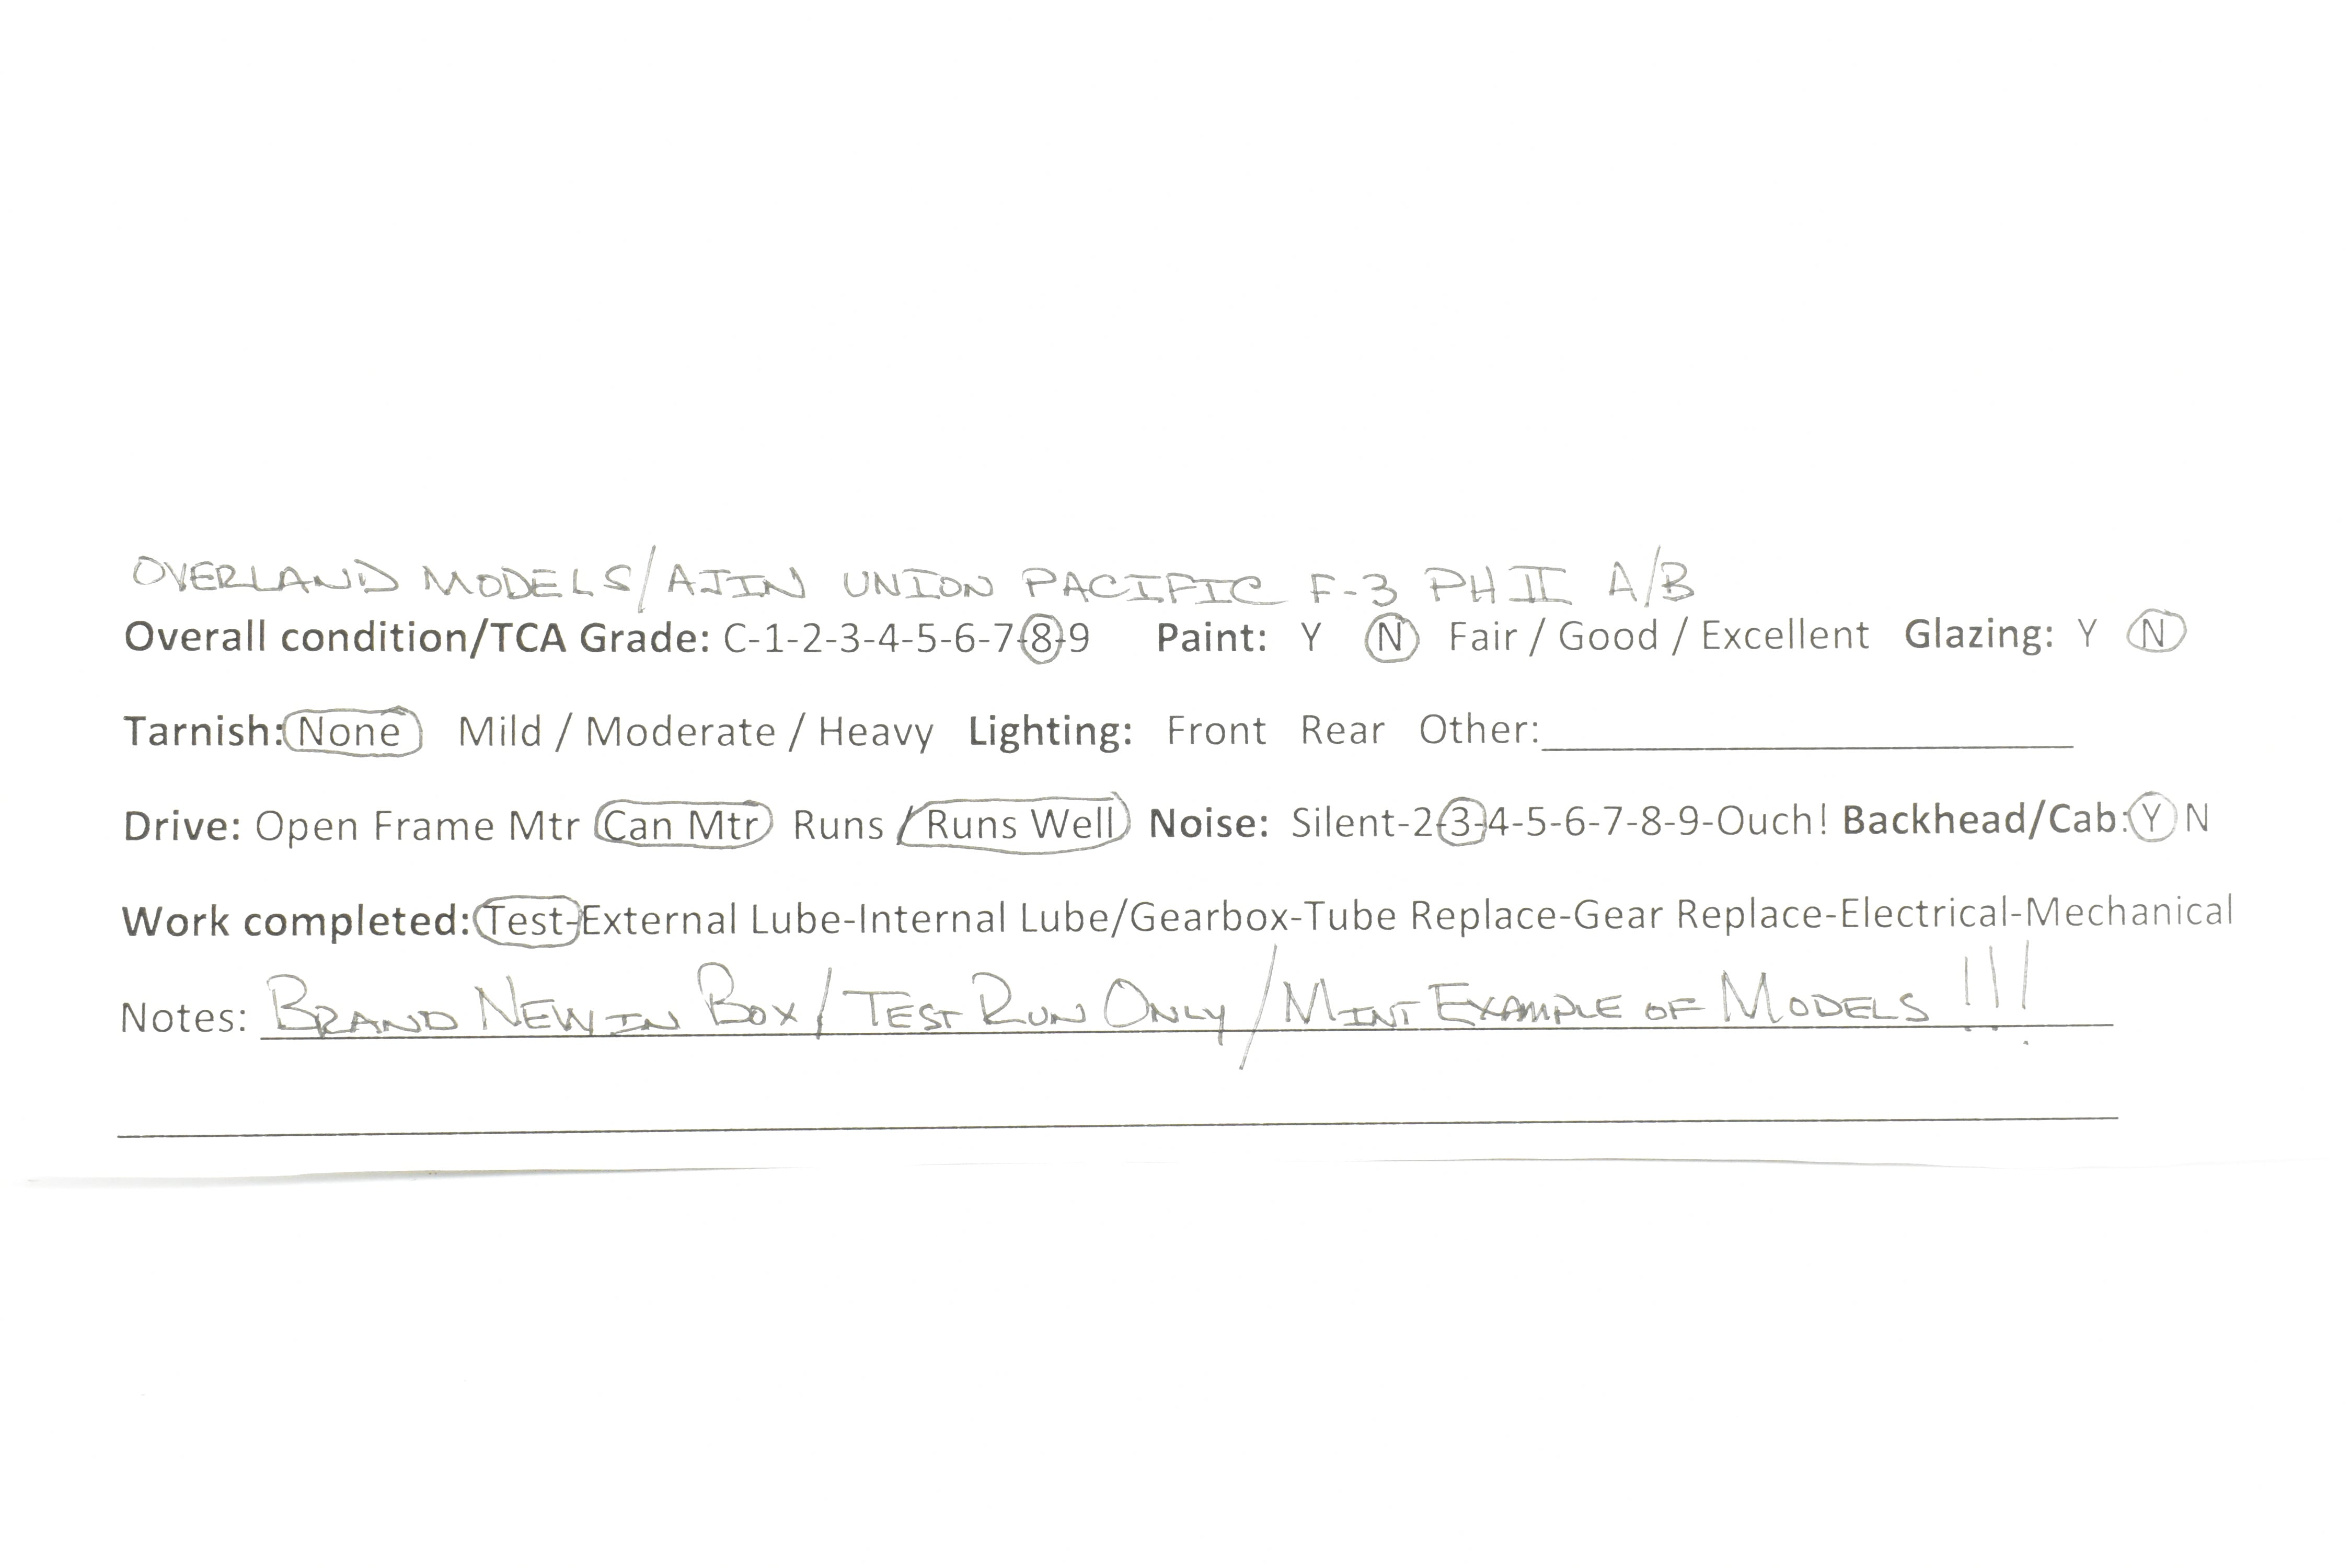 OVERLAND MODELS/AJIN UNION PACIFIC F-3 PH II A/B
Overall condition/TCA Grade: C-1-2-3-4-5-6-7-8-9 Paint: Y N Fair / Good / Excellent Glazing: Y N
Tarnish: None Mild / Moderate / Heavy Lighting: Front Rear Other:
Drive: Open Frame Mtr Can Mtr Runs / Runs Well Noise: Silent-2-3-4-5-6-7-8-9-Ouch! Backhead/Cab: Y N
Work completed: Test-External Lube-Internal Lube/Gearbox-Tube Replace-Gear Replace-Electrical-Mechanical
Notes: BRAND NEW IN BOX/TEST RUN ONLY/MINT EXAMPLE OF MODELS!!!